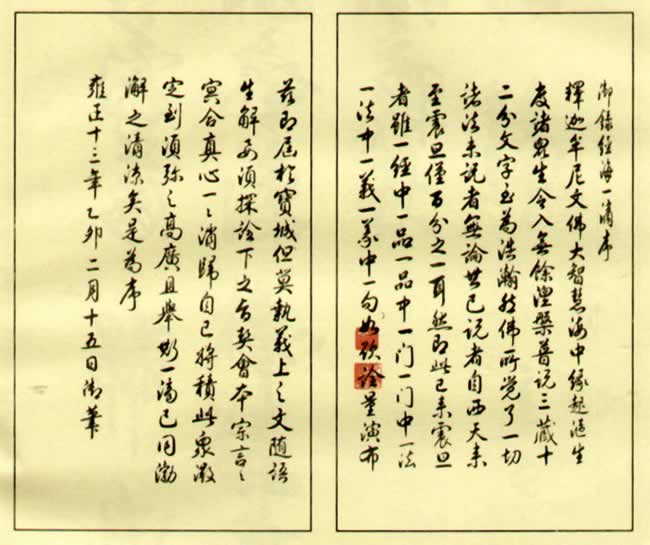 御錄經海一滴序
釋迦牟尼文佛大智慧海中緣起生
度諸眾生令入無餘涅槃普說三藏十
二分文字至為浩瀚然佛所覺了一切
諸法未說者無論其已說者自西天來
至震旦僅百分之一耳然即此已來震旦
者雖一經中一品一品中一门一门中一法
一法中一義一義中一句如欲詮量演布
茲即屆於寶城但莫執義上之文随語
生解要須探詮下之旨契會本宗言言
冥合真心一一消歸自己將積此衆微
定到須弥之高廣且舉斯一滴已同渤
澥之清涼矣是為序
雍正十三年乙卯二月十五日御筆